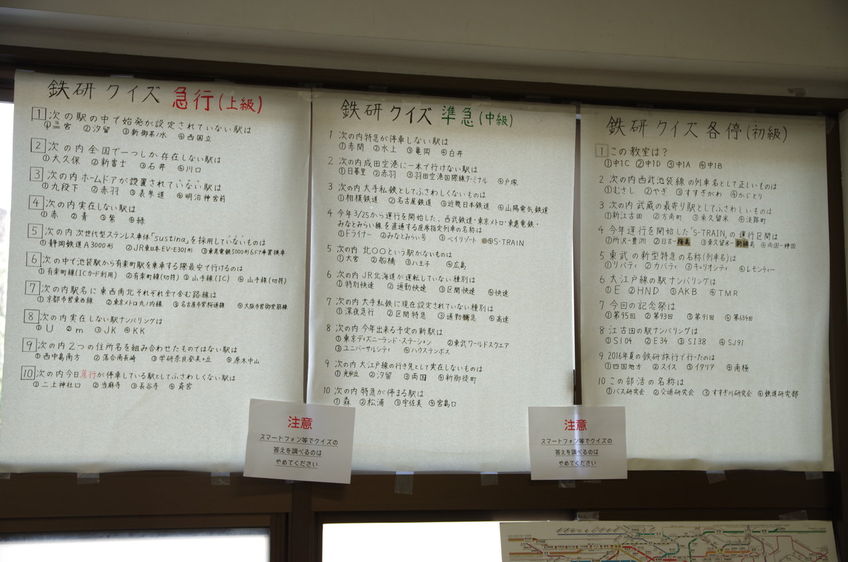 鉄研クイズ 急行(上級)
1 次の駅の中で始発が設定されていない駅は
①三宮 ②汐留 ③新御茶ノ水 ④西国立
2 次の内全国で一つしか存在しない駅は
①大久保 ②新富士 ③石井 ④川口
3 次の内ホームドアが設置されていない駅は
①九段下 ②赤羽 ③表参道 ④明治神宮前
4 次の内実在しない駅は
①赤 ②青 ③紫 ④緑
5 次の内次世代型ステンレス車体「sustina」を採用していないものは
①静岡鉄道A3000形 ②JR東日本EV-E301形 ③東急電鉄5000形5ドア車置換車
6 次の中で池袋駅から有楽町駅を乗車する際最安で行けるのは
①有楽町線(ICカード利用) ②有楽町線(切符) ③山手線(IC) ④山手線(切符)
7 次の内駅名に東西南北それぞれ全て含む路線は
①京都市営東西線 ②東京メトロ丸ノ内線 ③名古屋市営桜通線 ④大阪市営御堂筋線
8 次の内実在しない駅ナンバリングは
①U ②m ③JK ④KK
9 次の内2つの住所名を組み合わせたものではない駅は
①西中島南方 ②落合南長崎 ③学研奈良登美ヶ丘 ④原木中山
10 次の内今日急行が停車している駅としてふさわしくない駅は
①二上神社口 ②当麻寺 ③長谷寺 ④斎宮
鉄研クイズ 準急(中級)
1 次の内特急が停車しない駅は
①赤間 ②水上 ③亀岡 ④白井
2 次の内成田空港に一本で行けない駅は
①日暮里 ②赤羽 ③羽田空港国際線ターミナル ④戸塚
3 次の内大手私鉄としてふさわしくないものは
①相模鉄道 ②名古屋鉄道 ③近畿日本鉄道 ④山陽電気鉄道
4 今年3/25から運行を開始した、西武鉄道・東京メトロ・東急電鉄・
みなとみらい線を直通する座席指定列車の名称は
①Fライナー ②みなとみらい号 ③ベイリゾート ④S-TRAIN
5 次の内北〇〇という駅がないものは
①大宮 ②船橋 ③八王子 ④広島
6 次の内JR北海道が運転していない種別は
①特別快速 ②通勤快速 ③区間快速 ④快速
7 次の内大手私鉄に現在設定されていない種別は
①深夜急行 ②区間特急 ③通勤特急 ④高速
8 次の内今年出来る予定の新駅は
①東京ディズニーランド・ステーション ②東武ワールドスクウェア
③ユニバーサルシティ ④ハウステンボス
9 次の内大江戸線の行き先として実在しないのは
①光が丘 ②汐留 ③両国 ④新御徒町
10 次の内特急が停まる駅は
①森 ②松浦 ③宇佐美 ④宮島口
鉄研クイズ 各停(初級)
1 この教室は?
①中1C ②中1D ③中1A ④中1B
2 次の内西武池袋線の列車名として正しいものは
①むさし ②やぎ ③すすきがわ ④かぶとり
3 次の内武蔵の最寄り駅としてふさわしいものは
①新江古田 ②方南町 ③東久留米 ④淡路町
4 今年運行を開始した「S-TRAIN」の運行区間は
①所沢-豊洲
5 東武の新型特急の名称(列車名)は
①リバティ ②カバティ ③チャリオンティ ④レモンティー
6 大江戸線の駅ナンバリングは
①E ②HND ③AKB ④TMR
7 今回の記念祭は
①第95回 ②第93回 ③第91回 ④第634回
8 江古田の駅ナンバリングは
①SI04 ②E34 ③SI38 ④SJ91
9 2016年夏の鉄研旅行で行ったのは
①四国地方 ②スイス ③イタリア ④南極
10 この部活の名称は
①バス研究会 ②交通研究会 ③すすぎ川研究会 ④鉄道研究部
注意
スマートフォン等でクイズの
答えを調べるのは
やめてください
注意
スマートフォン等でクイズの
答えを調べるのは
やめてください